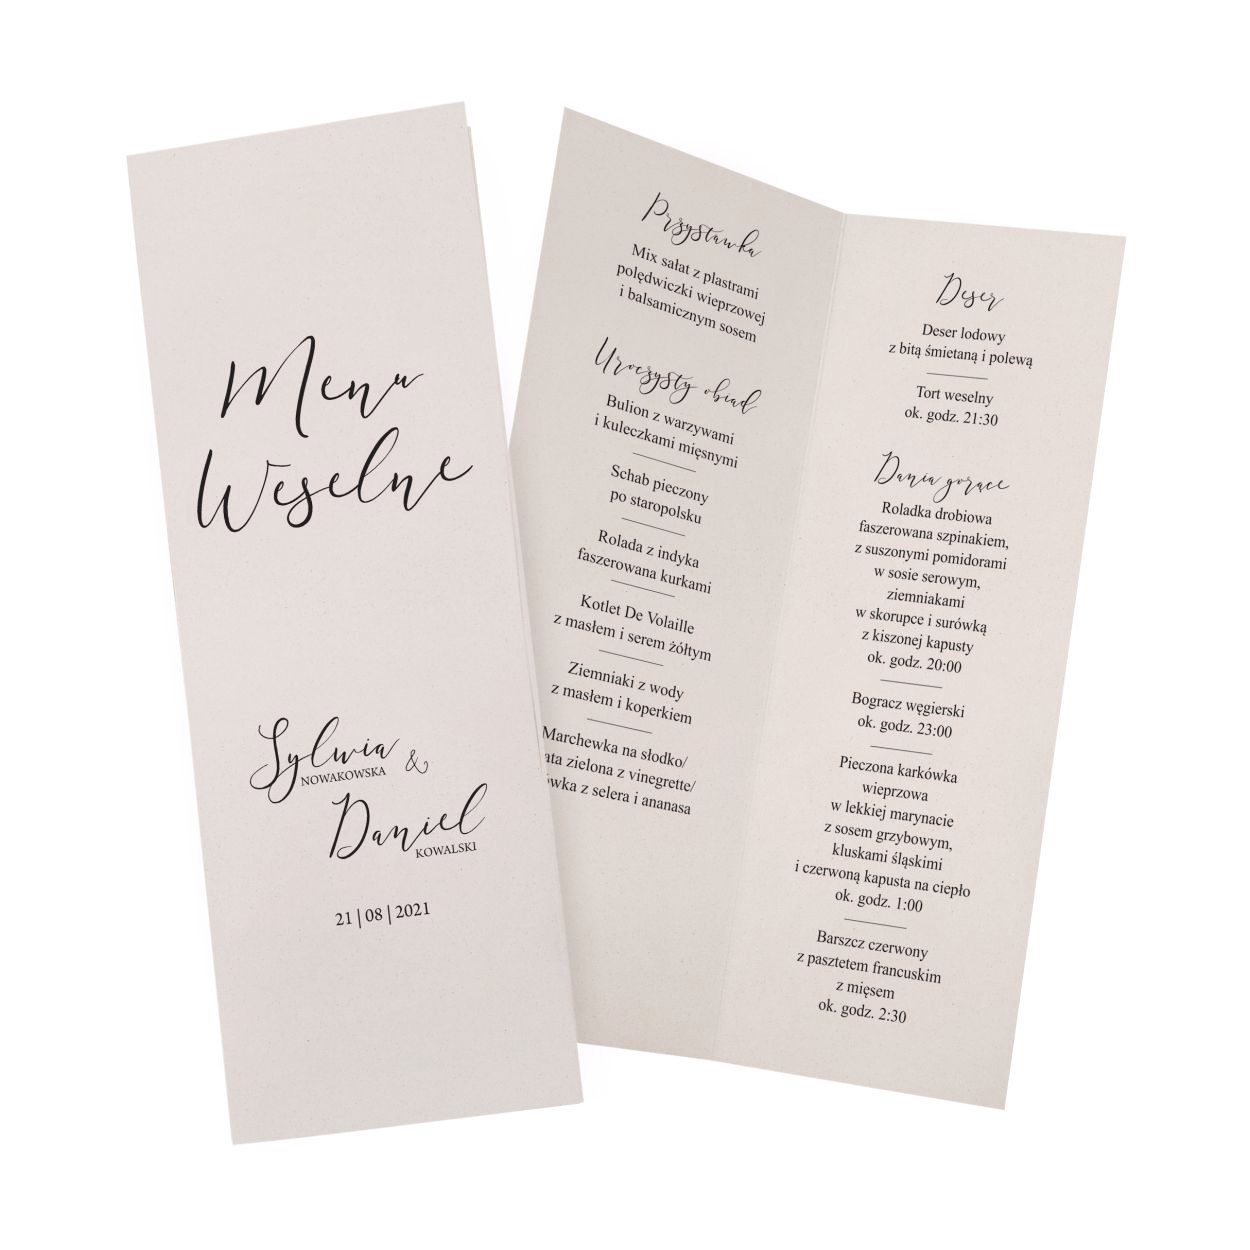 Menu
Weselne
Sylwia
NOWAKOWSKA &
Daniel
KOWALSKI
21 | 08 | 2021
Przystawka
Mix sałat z plastrami
polędwiczki wieprzowej
i balsamicznym sosem
Uroczysty obiad
Bulion z warzywami
i kuleczkami mięsnymi
Schab pieczony
po staropolsku
Rolada z indyka
faszerowana kurkami
Kotlet De Volaille
z masłem i serem żółtym
Ziemniaki z wody
z masłem i koperkiem
Marchewka na słodko/
zielona z vinegrette/
z selera i ananasa
Deser
Deser lodowy
z bitą śmietaną i polewą
Tort weselny
ok. godz. 21:30
Dania gorące
Roladka drobiowa
faszerowana szpinakiem,
z suszonymi pomidorami
w sosie serowym,
ziemniakami
w skorupce i surówką
z kiszonej kapusty
ok. godz. 20:00
Bogracz węgierski
ok. godz. 23:00
Pieczona karkówka
wieprzowa
w lekkiej marynacie
z sosem grzybowym,
kluskami śląskimi
i czerwoną kapusta na ciepło
ok. godz. 1:00
Barszcz czerwony
z pasztetem francuskim
z mięsem
ok. godz. 2:30